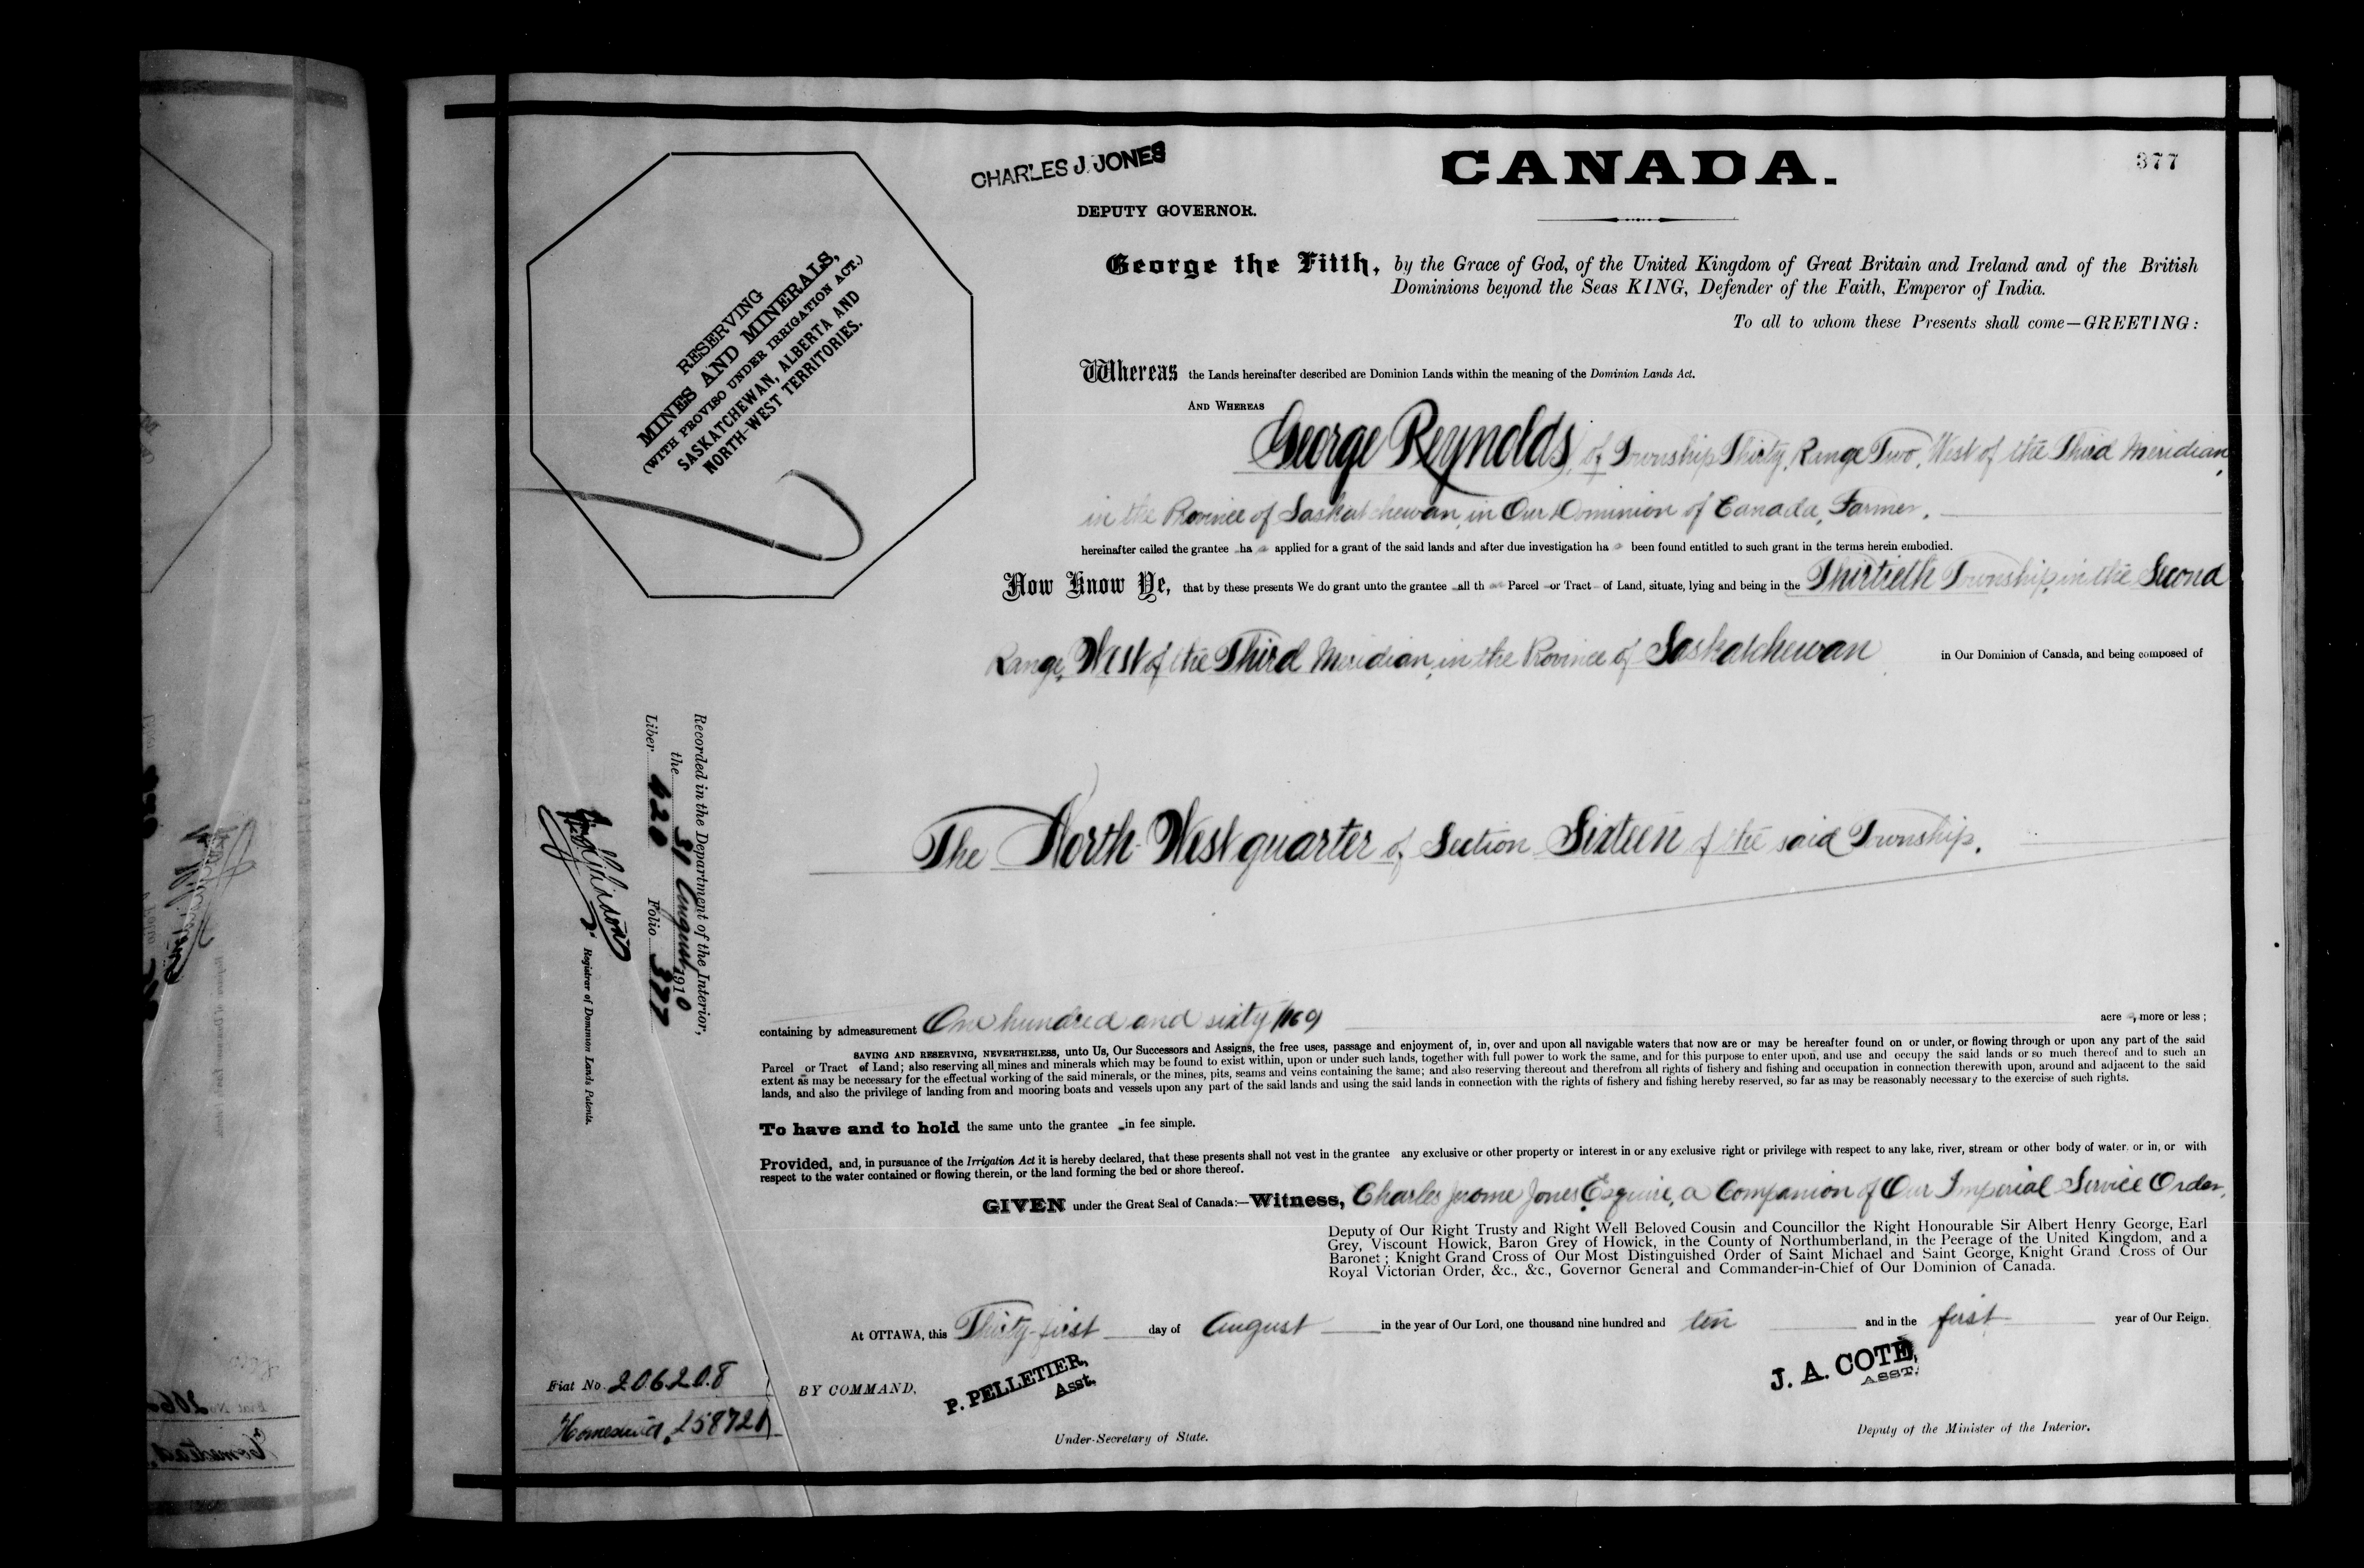 CHARLES J. JONES
CANADA.
377
DEPUTY GOVERNOR.
RESERVING
MINES AND MINERALS,
(WITH PROVISO UNDER IRRIGATION ACT.)
SASKATCHEWAN, ALBERTA AND
NORTH-WEST TERRITORIES.
George the Fifth, by the Grace of God, of the United Kingdom of Great Britain and Ireland and of the British
Dominions beyond the Seas KING, Defender of the Faith, Emperor of India.
To all to whom these Presents shall come—GREETING:
Whereas the Lands hereinafter described are Dominion Lands within the meaning of the Dominion Lands Act.
AND WHEREAS
George Reynolds, of Township Thirty, Range Two, West of the Third Meridian,
in the Province of Saskatchewan, in Our Dominion of Canada, Farmer.
hereinafter called the grantee has applied for a grant of the said lands and after due investigation has been found entitled to such grant in the terms herein embodied.
Now Know Ye, that by these presents We do grant unto the grantee all that Parcel or Tract of Land, situate, lying and being in the Thirtieth Township, in the Second
Range, West of the Third Meridian, in the Province of Saskatchewan in Our Dominion of Canada, and being composed of
The North-West quarter of Section Sixteen of the said Township.
Recorded in the Department of the Interior,
the 31 August 1910
Liber 420 Folio 377
Registrar of Dominion Lands Patents.
containing by admeasurement One hundred and sixty (160) acres, more or less;
SAVING AND RESERVING, NEVERTHELESS, unto Us, Our Successors and Assigns, the free uses, passage and enjoyment of, in, over and upon all navigable waters that now are or may be hereafter found on or under, or flowing through or upon any part of the said
Parcel or Tract of Land; also reserving all mines and minerals which may be found to exist within, upon or under such lands, together with full power to work the same, and for this purpose to enter upon, and use and occupy the said lands or so much thereof and to such an
extent as may be necessary for the effectual working of the said minerals, or the mines, pits, seams and veins containing the same; and also reserving thereout and therefrom all rights of fishery and fishing and occupation in connection therewith upon, around and adjacent to the said
lands, and also the privilege of landing from and mooring boats and vessels upon any part of the said lands and using the said lands in connection with the rights of fishery and fishing hereby reserved, so far as may be reasonably necessary to the exercise of such rights.
To have and to hold the same unto the grantee in fee simple.
Provided, and, in pursuance of the Irrigation Act it is hereby declared, that these presents shall not vest in the grantee any exclusive or other property or interest in or any exclusive right or privilege with respect to any lake, river, stream or other body of water. or in, or with
respect to the water contained or flowing therein, or the land forming the bed or shore thereof.
GIVEN under the Great Seal of Canada:—Witness, Charles Jerome Jones Esquire, a Companion of Our Imperial Service Order,
Deputy of Our Right Trusty and Right Well Beloved Cousin and Councillor the Right Honourable Sir Albert Henry George, Earl
Grey, Viscount Howick, Baron Grey of Howick, in the County of Northumberland, in the Peerage of the United Kingdom, and a
Baronet; Knight Grand Cross of Our Most Distinguished Order of Saint Michael and Saint George, Knight Grand Cross of Our
Royal Victorian Order, &c., &c., Governor General and Commander-in-Chief of Our Dominion of Canada.
At OTTAWA, this Thirty-first day of August in the year of Our Lord, one thousand nine hundred and ten and in the first year of Our Reign.
Fiat No. 206208
Homestead, 258721
BY COMMAND,
P. PELLETIER,
Asst.
Under-Secretary of State.
J. A. COTÉ,
ASST.
Deputy of the Minister of the Interior.